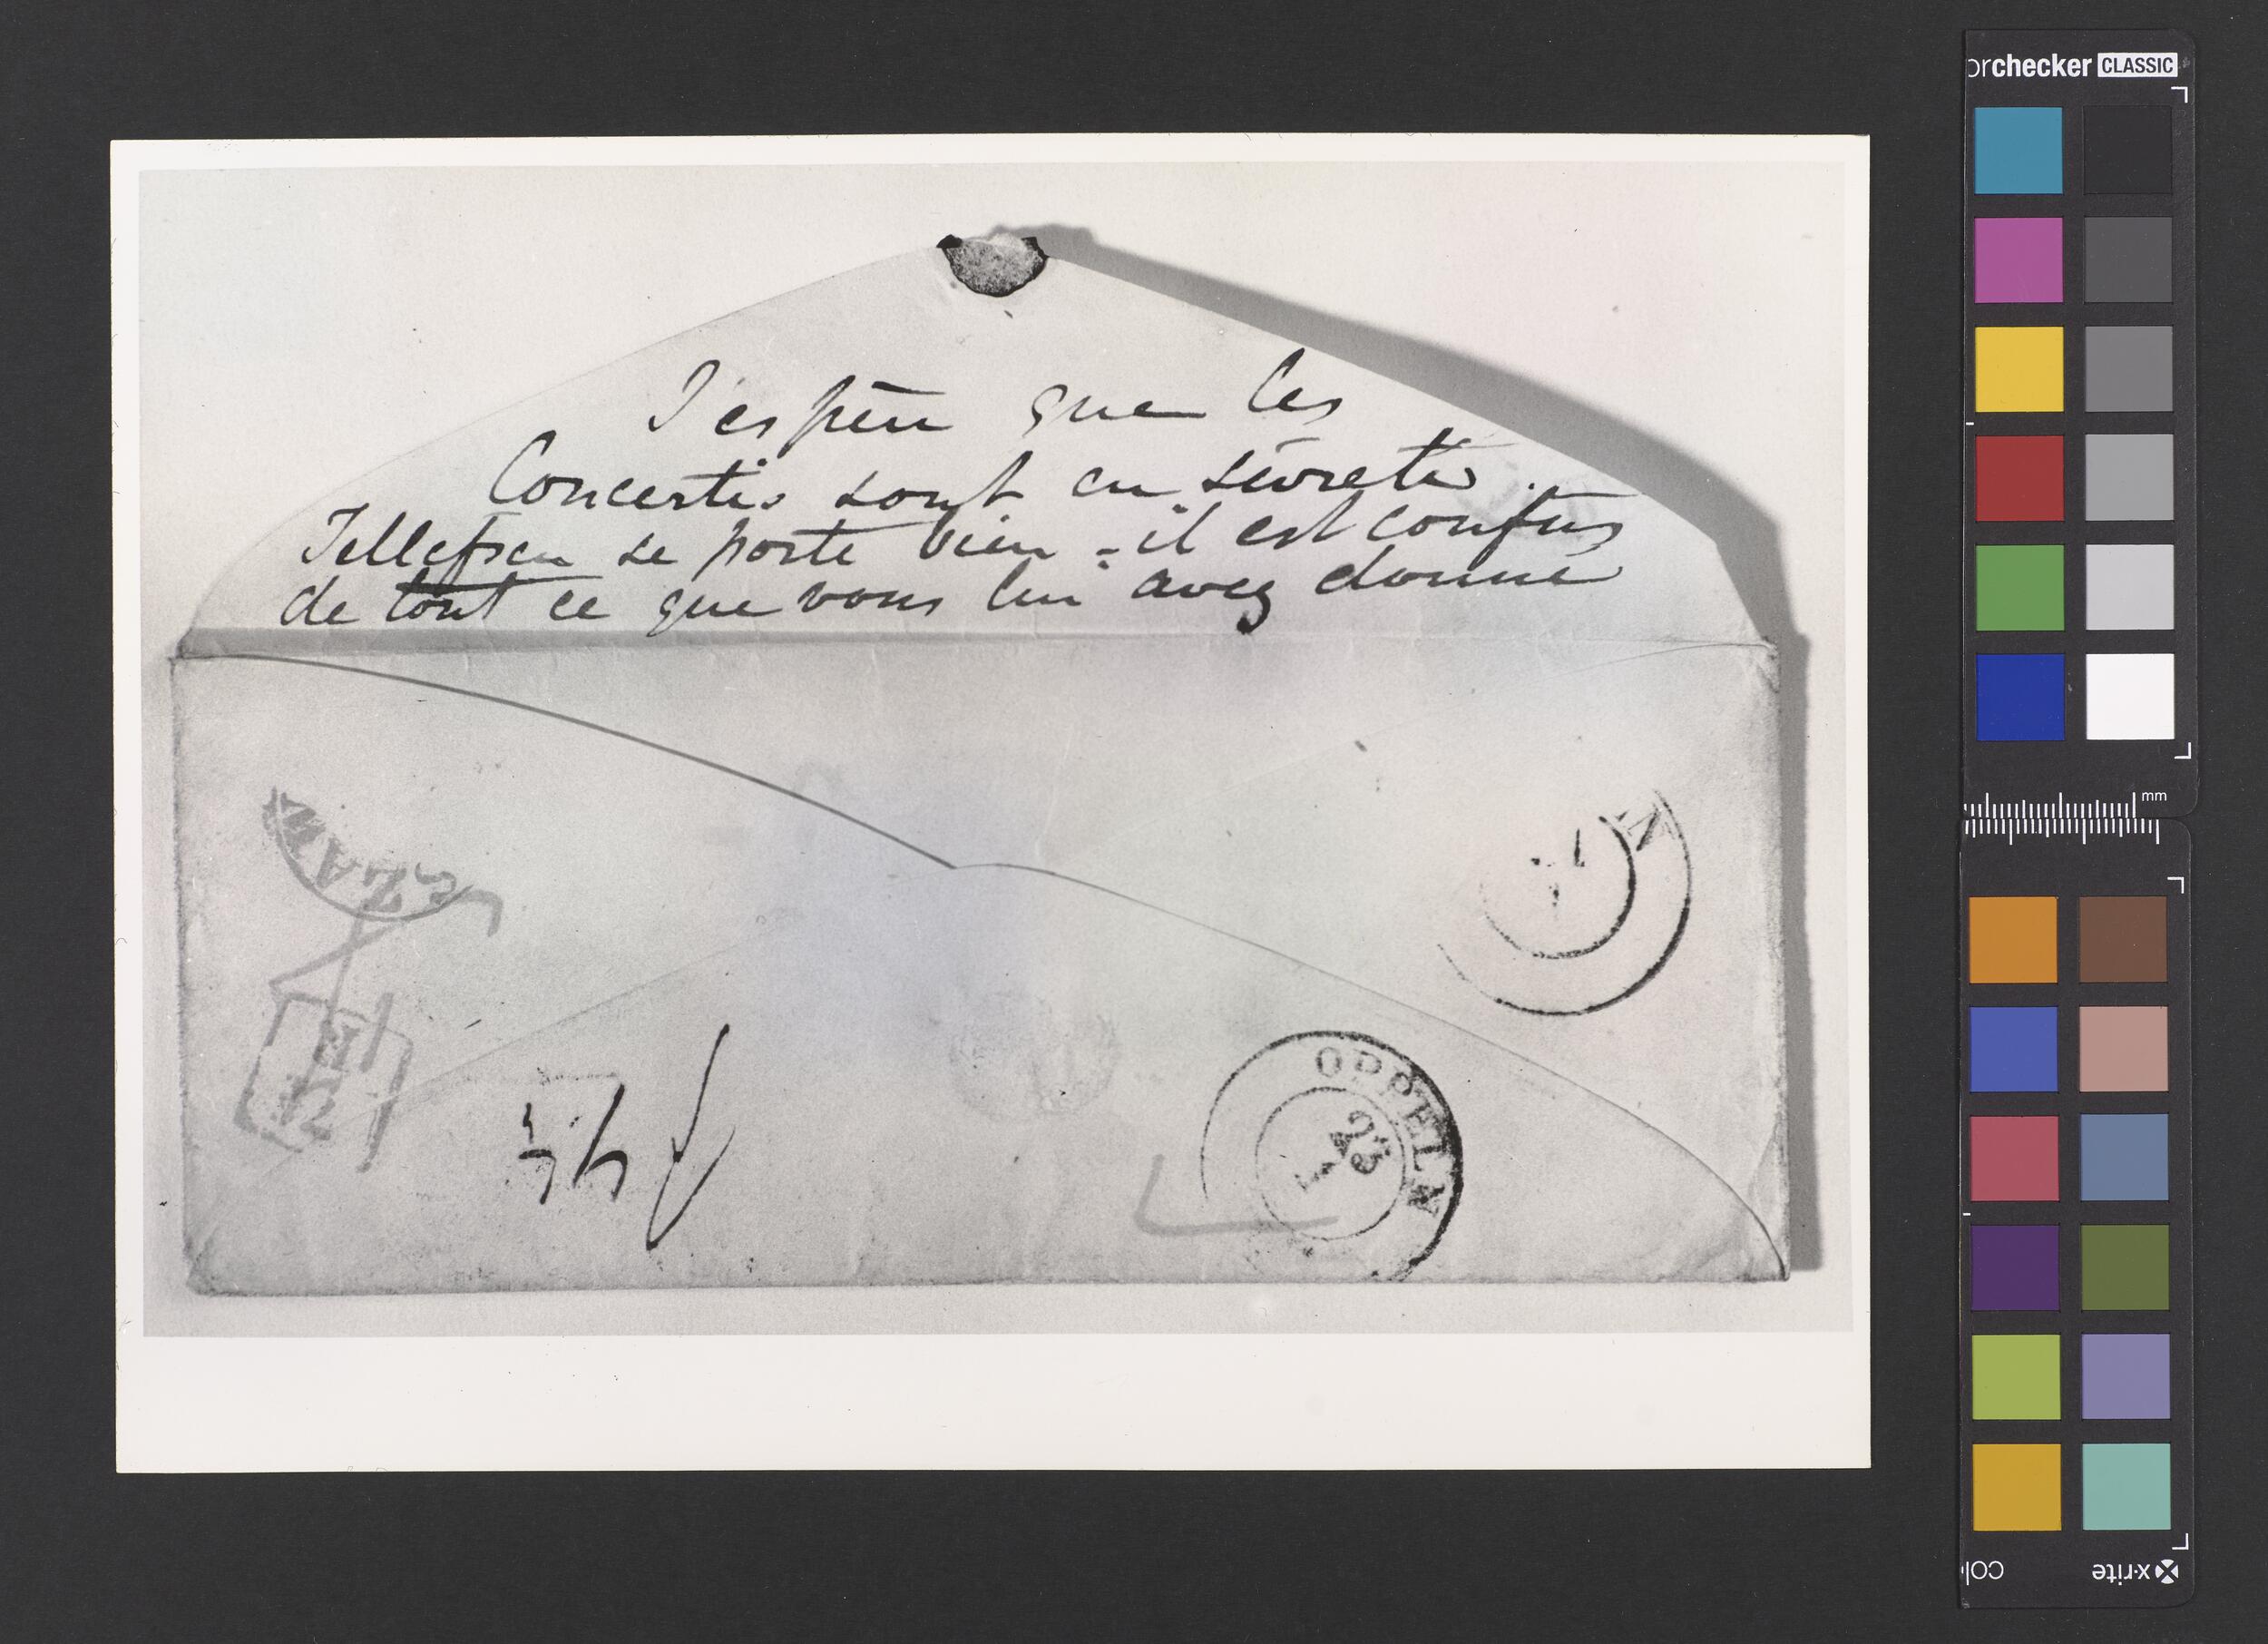 J'espère que les
Concertis sont en sûreté.
Tellefsen se porte bien - il est confus
de tout ce que vous lui avez donné
OPPELN
23
1
N
orchecker CLASSIC
mm
x·rite
col